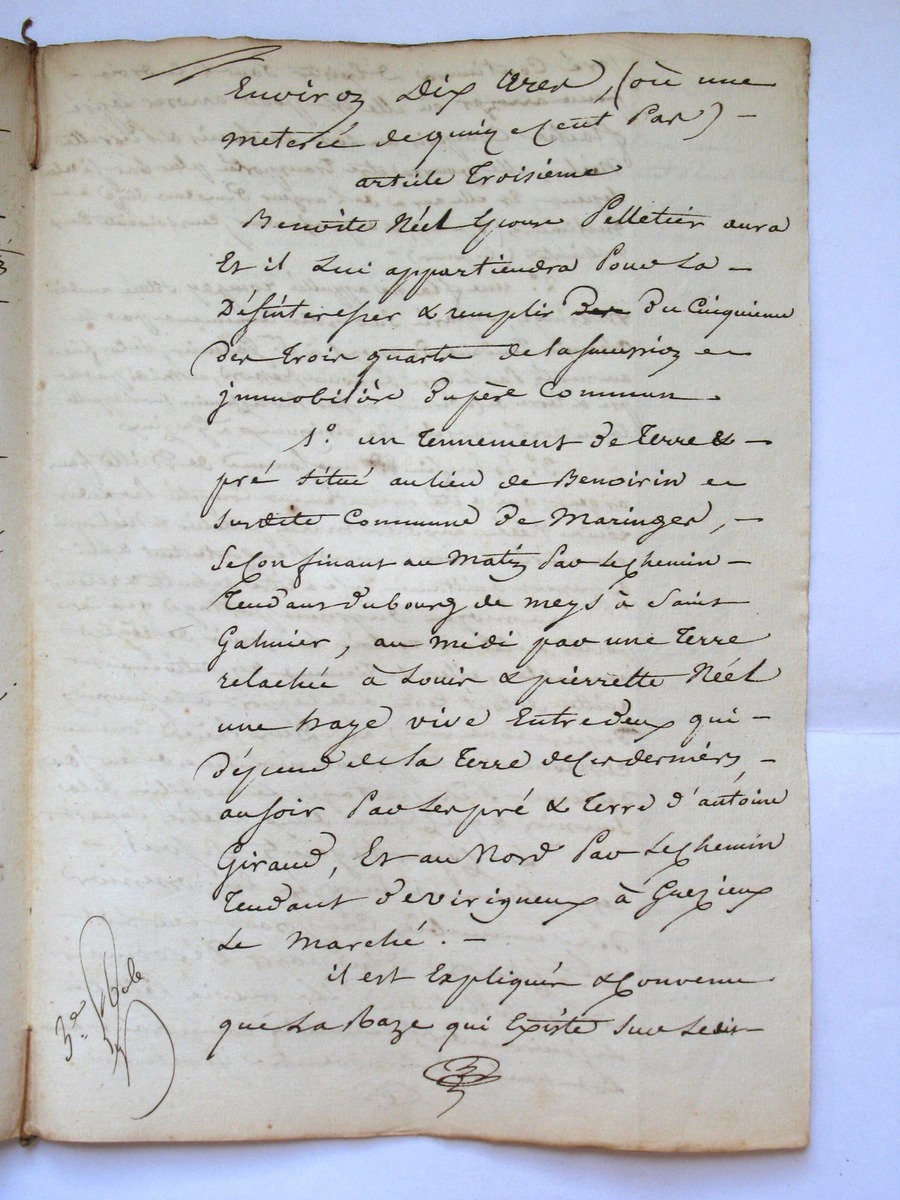 Environ Dix ares, (où une
meterée de quinze cent Pas) –
article Troisième
Benoite Néel Epouse Pelletier aura
Et il Lui appartiendra Pour La –
Désintéresser & remplir Des Du Cinquieme
Des Trois quarts de la succession
jmmobilière Du père Commun –
1.° un Tennement De Terre & –
pré situé au lieu de Benoirin
Susdite Commune De Maringes, –
Se Confinant au Matin Par Le Chemin –
Tendant Du bourg de meys à Saint
Galmier, au midi par une Terre
relachée à Louis & pierrette Néel
une haye vive Entredeux qui –
dépend de la Terre de Ces derniers, –
au soir Par Les pré & Terre d'antoine
Giraud, Et au Nord Par Le Chemin
Tendant De virigneux à Grezieux
Le Marché. –
il est Expliqué & Convenu
que La haze qui Existe Sur Le
3.e Role